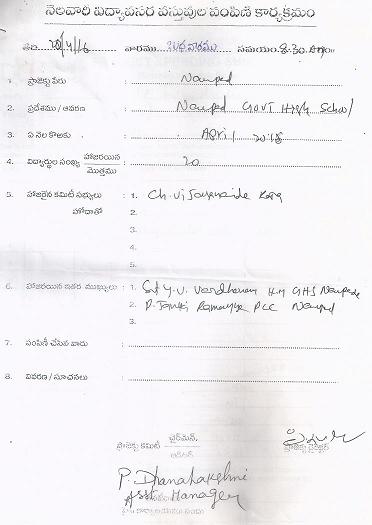 నెలవారీ విద్యావసర వస్తువుల పంపిణీ కార్యక్రమం
తేది: 20/4/16 వారము బుధవారము సమయం: 8-30 Am
1. ప్రాజెక్టు పేరు : Naupad
2. ప్రదేశము / ఆవరణ : Naupad GOVT High School
3. ఏ నెల కొఱకు : April 2016
4. విద్యార్థుల సంఖ్య హాజరయిన / మొత్తము : 20
5. హాజరైన కమిటీ సభ్యులు : 1. Ch.
హోదాతో 2.
3.
4.
5.
6. హాజరయిన ఇతర ముఖ్యులు : 1. Y.V. Vardhanam H.M GHS Naupada
2. P. Janaki Ramayya PCC Naupad
3.
7. పంపిణీ చేసిన వారు :
8. వివరణ / సూచనలు :
ప్రాజెక్టు కమిటీ చైర్మన్. / ఆడిటర్ ప్రాజెక్టు డైరెక్టర్
P. Dhanalakshmi
Asst. Manager